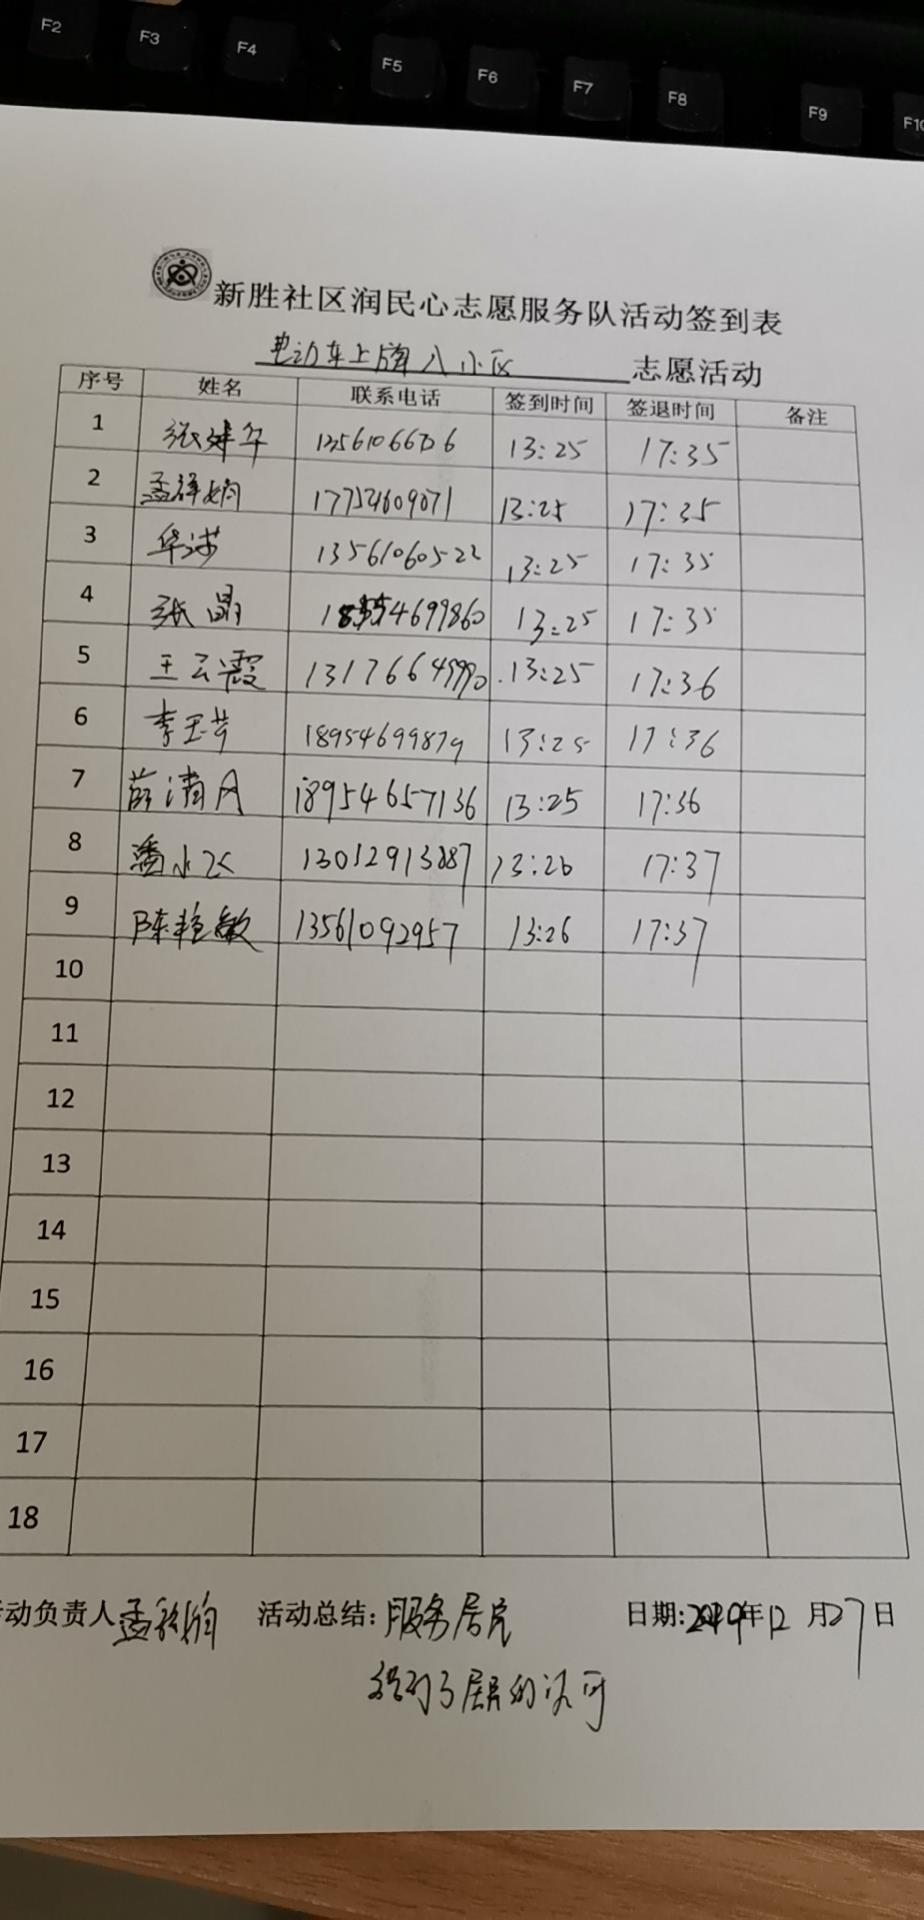 F2 F3 F4 F5 F6 F7 F8 F9 F10
新胜社区润民心志愿服务队活动签到表
电动车上牌入小区 志愿活动
序号 姓名 联系电话 签到时间 签退时间 备注
1 张建华 13:25 17:35
2 孟祥娟 17752609071 13:25 17:35
3 华诺 13561060522 13:25 17:35
4 张晶 18954699860 13:25 17:35
5 王云霞 13:25 17:36
6 李玉芳 18954699879 13:25 17:36
7 薛清月 18954657136 13:25 17:36
8 潘 13012913887 13:26 17:37
9 陈艳敏 13561092957 13:26 17:37
10
11
12
13
14
15
16
17
18
动负责人 孟祥娟 活动总结: 服务居民 日期: 2019年12月27日
得到了居民的认可